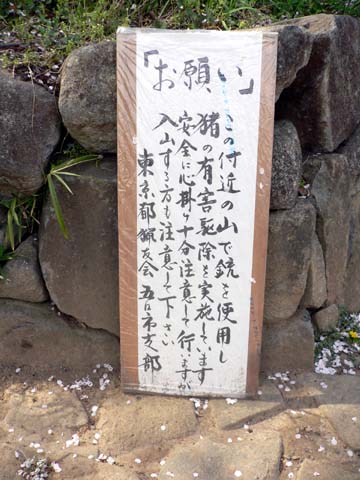 「お願い」
この付近の山で銃を使用し
猪の有害駆除を実施しています
安全に心掛け十分注意して行いますが
入山する方も注意して下さい
東京都猟友会 五日市支部